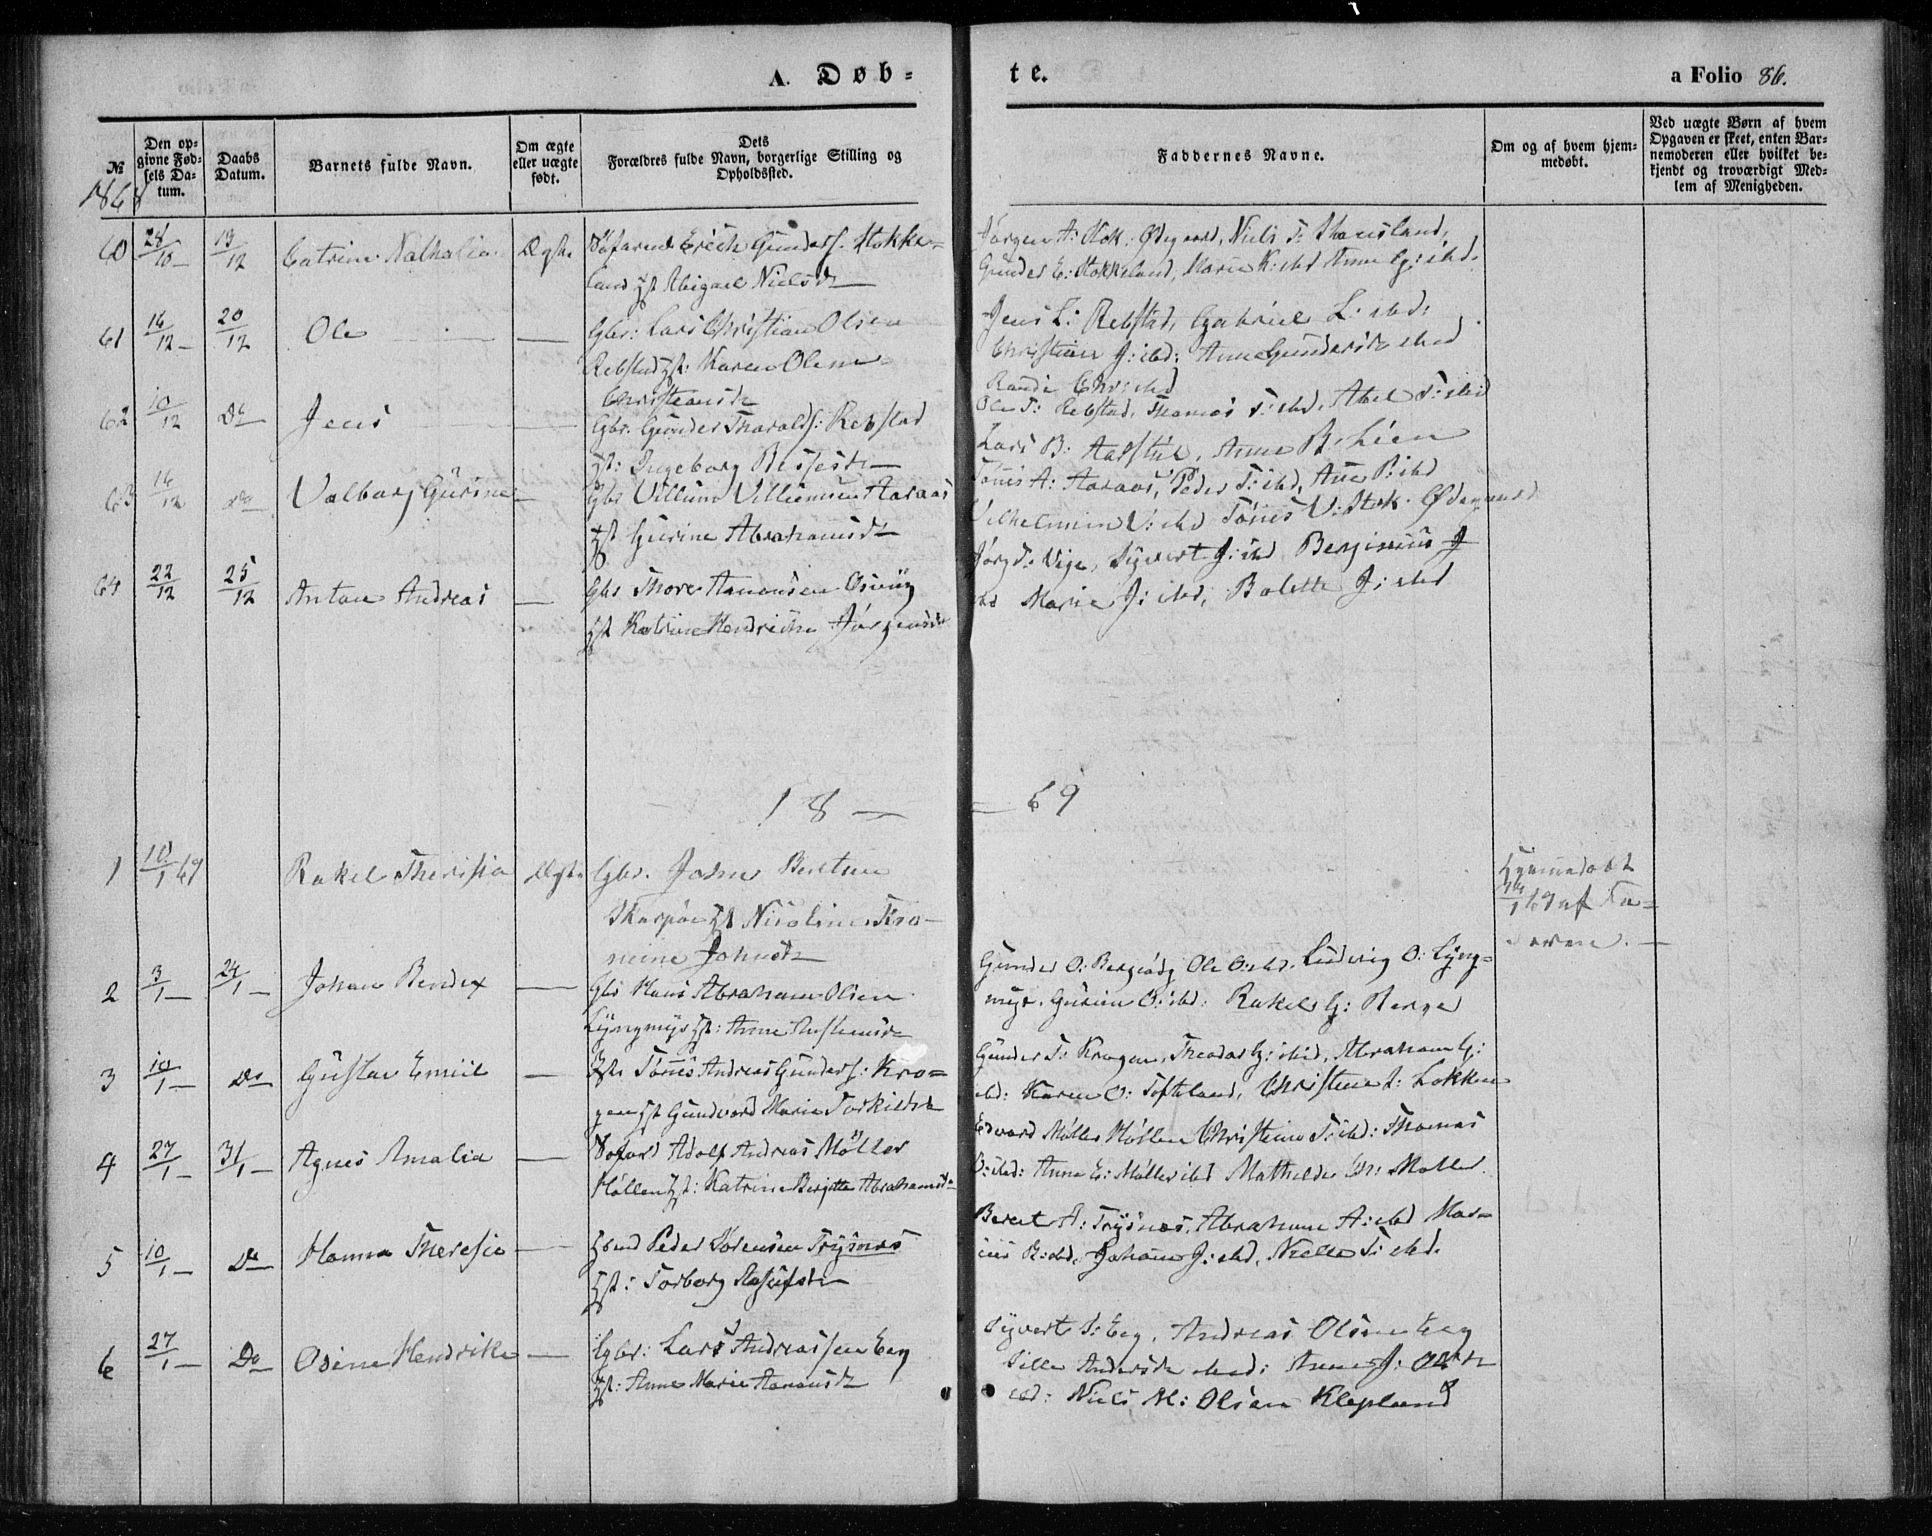 A. Døb-
te.
a Folio 86.
№
Den op-
givne Fød-
sels Da-
tum.
Daabs
Datum.
Barnets fulde Navn.
Om ægte
eller uægte
født.
Dets
Forældres fulde Navn, borgerlige Stilling og
Opholdssted.
Faddernes Navne.
Om og af hvem hjem-
medøbt.
Ved uægte Børn af hvem
Opgaven er skeet, enten Bar-
nemoderen eller hvilket be-
kjendt og troværdigt Med-
lem af Menigheden.
1868
60 28/10 13/12 Catrine Nathalia Ægte Søfarend Erich Gunders. Stokke-
land Hst Abigael Nielsdr
Jørgen A: Stok: Ødegaard, Niels T:
Gunder E: Stokkeland, Marie K: ibd Anne G: ibd.
61 16/12 20/12 Ole Gbr: Lars Christian Olsen
Rebstad Hst: Karen Olene
Christensdr
Jens L: Rebstad, Gabriel L: ibd:
Christian J: ibd: Anne Gundersdr ibed
Randi Chr: ibd
62 10/12 Do Jens Gbr. Gunder Tharalds: Rebstad
Hst: Ingeborg
Ole T: Rebstad, Thomas T: ibd, Abel T: ibid
Lars B: Anne B: Lien
63 16/12 Do Valborg Gurine Gbr Villum Villumsen Aaraas
Hst Gurine Abrahamsdr
Tönes A: Aaraas, Peder T: ibd, Ane P: ibd
Vilhelmin V: ibd Tönes V: Stok. Ødegaard
64 22/12 25/12 Anton Andreas Gbr Thore Aanonsen
Hst Katrine Hendrikke Jørgensdr
Jørg T: Vige, Syvert J: ibd Benjimius J
ibd Marie J: ibd, Bolette J: ibd
18 — — 69
1 10/1 69 Rakel Theresia Ægte Gbr. John Bentsen
Skarpøe Hst Nicoline
Johnsdr
Hjemmedøbt
/1 69 af Fa-
deren.
2 3/1 24/1 Johan Bendix Gbr Hans Abraham Olsen
Lyngmyr Hst: Anne
Gunder O: Ole O: ibd. Ludvig O: Lyng-
myr. Gurine O: ibd: Rakel G: Berge
3 10/1 Do Gustav Emiil Tönes Andreas Gunders: Kro-
gen Hst Gundvord Marie Torkildsdr
Gunder T: Krogen, Theodor G: ibd, Abraham G:
ibd: Karen O: Tofteland, Christine L: Løkken
4 27/1 31/1 Agnes Amalia Søfard Adolf Andreas Möller
Höllen Hst: Katrine Bergitte Abrahamsdr
Edvard Möller Höllen Christine T: ibd: Thomas
O: ibd: Anne E: Möller ibd Mathilde Chr: Møller
5 10/1 Do Hanna Theresia Peder Sørensen Trysnes
Hst: Torborg
Berent A: Trysnes, Abraham A: ibd Mar-
ius B: ibd. Johan J: ibd, Nielle T: ibd.
6 27/1 Do Osine Hendrikke Gbr: Lars Andreassen Eeg
Hst: Anne Marie Aanonsdr
Syvert S: Eeg, Andreas Olsen Eeg
Sille Andersdr ibed: Anne J: Olsdr
ibd: Niels M: Olsen Klepland